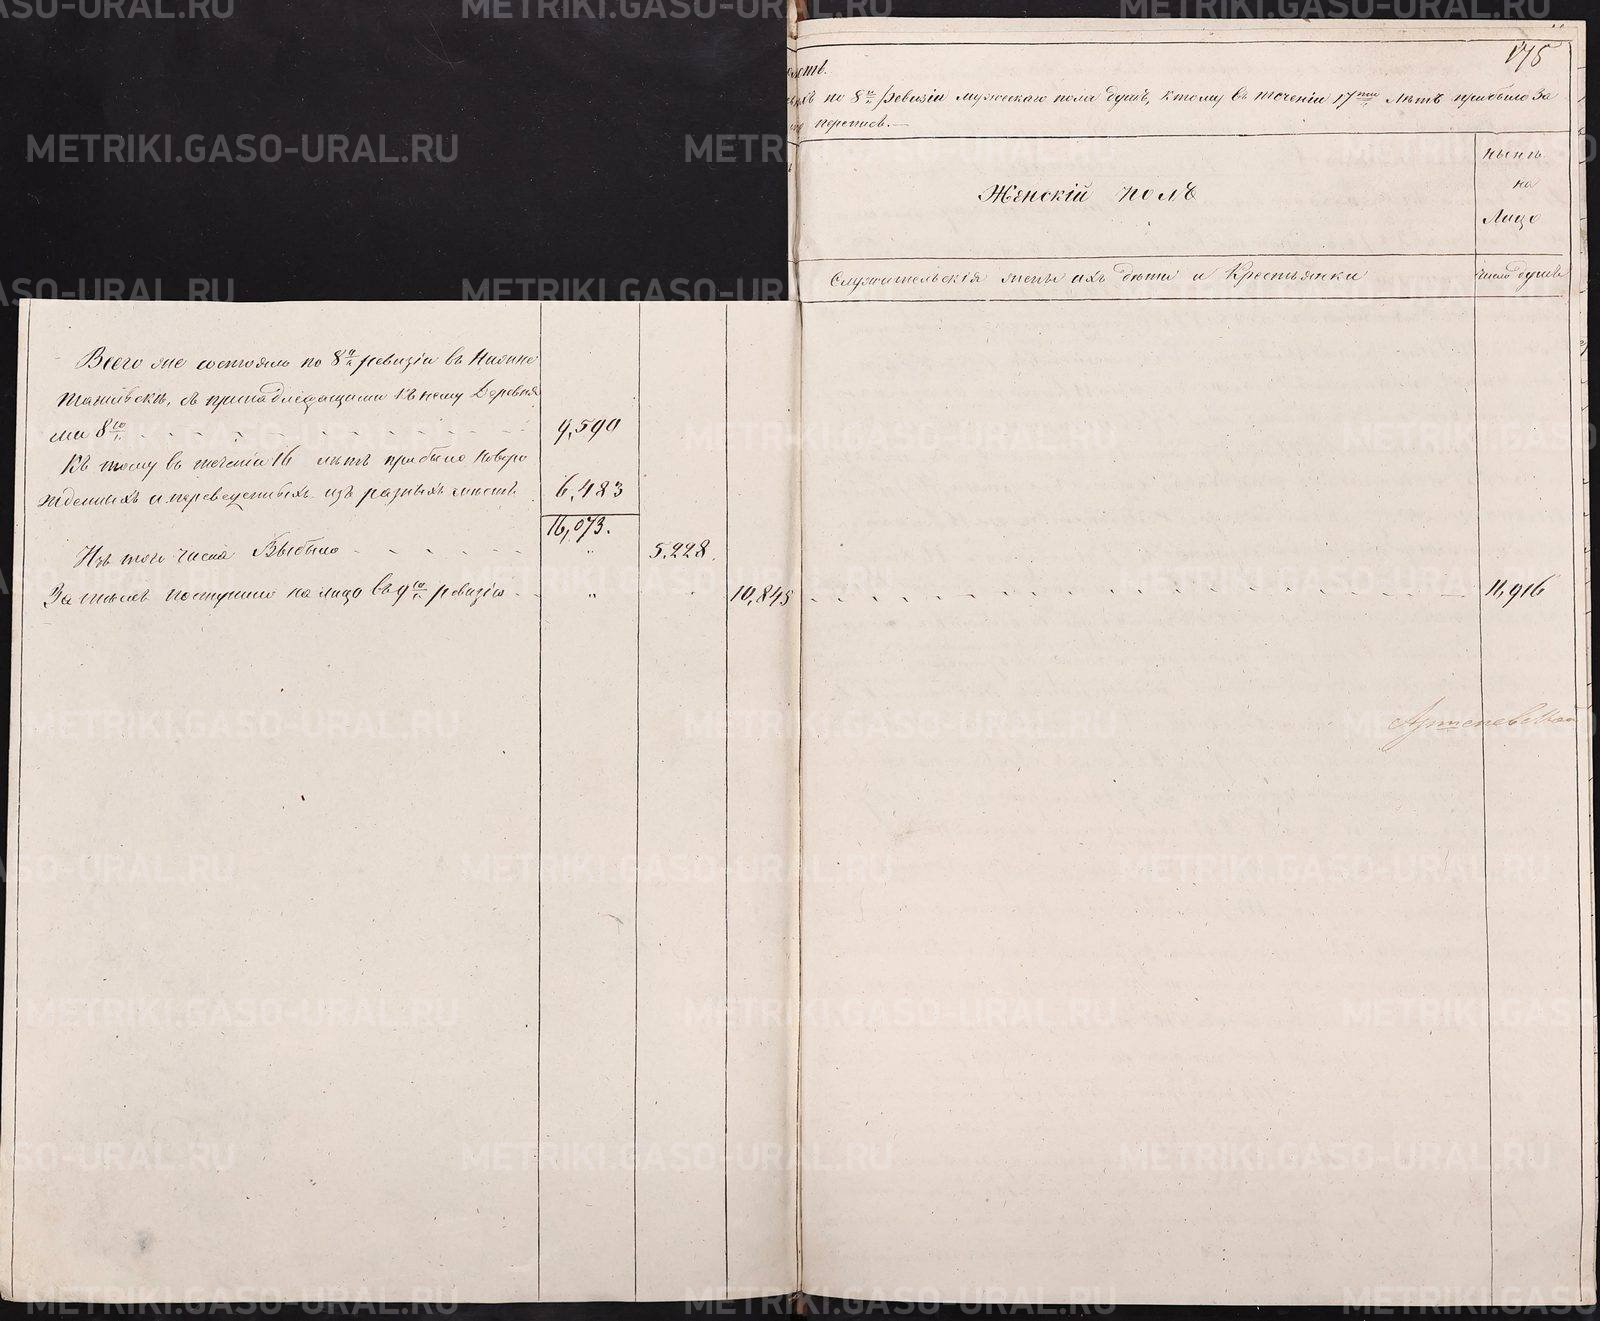 175
по 8й ревизіи мужескаго пола душъ, к тому въ теченіи 17ти лѣтъ прибыло за
переписв.—
Женскій полъ
нынѣ
на
Лицо
Служительскія жены ихъ дѣти и Крестьянки
число душъ
Всего же состояло по 8й ревизіи въ Нижне
Тагильскѣ, съ принадлежащими къ нему Деревня
ми 8ю 9,590
Къ тому въ теченіи 16 лѣтъ прибыло новоро
жденныхъ и переведенныхъ изъ разныхъ мѣстъ 6,483
16,073.
Изъ того числа Выбыло " 5,228.
За тѣмъ поступило на лицо въ 9ю ревизію " 10,845 11,916
METRIKI.GASO-URAL.RU